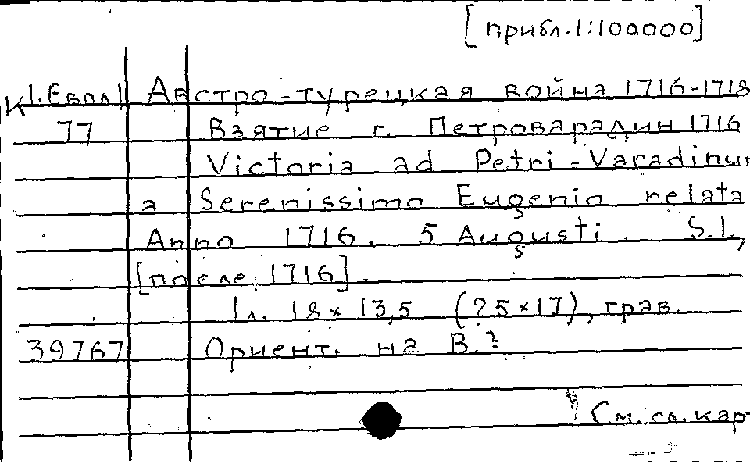 [прибл. 1:100000]
К 1. Евпл Австро-турецкая война 1716-1718
77 Взятие г. Петроварадин 1716
Victoria ad Petri-Varadinu
a Serenissimo Eugenio relata
Anno 1716. 5 Augusti. S.l.,
[после 1716].
1 л. 18 × 13,5 (25×17), грав.
39767 Ориент. на В.?
См. сл. кар